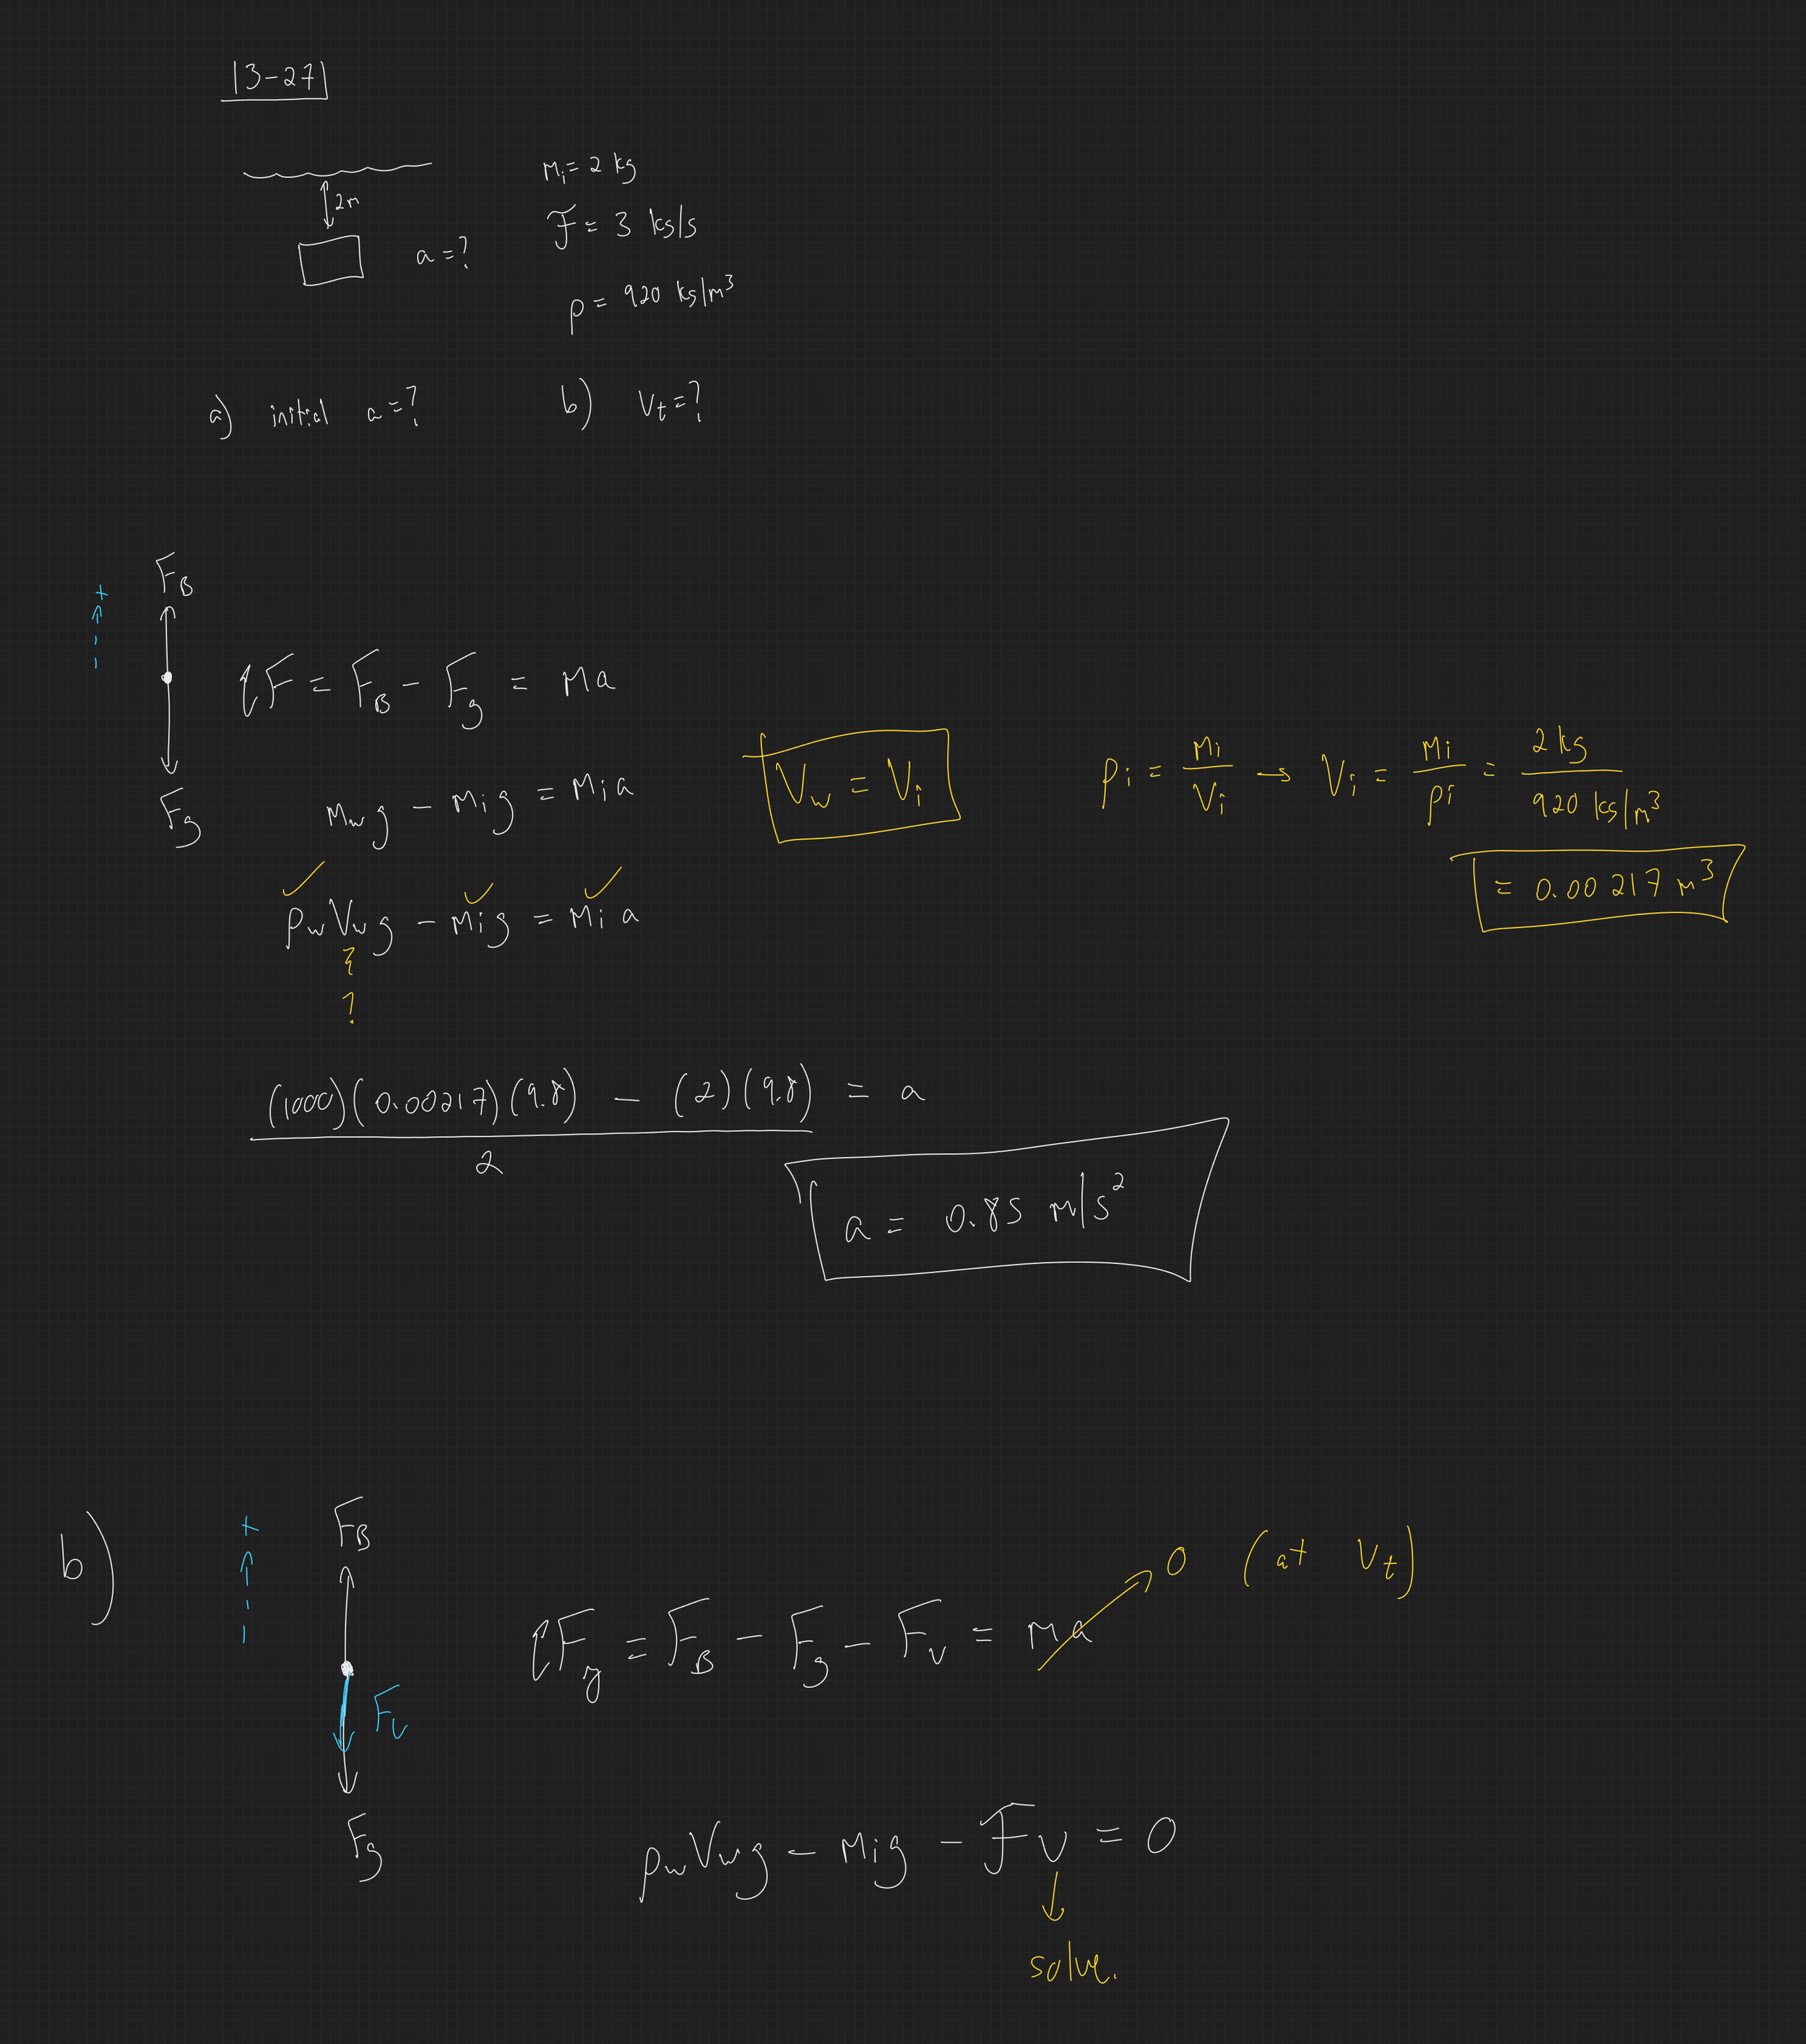 13-27
2m
a = ?
Mi = 2 kg
F = 3 kg/s
ρ = 920 kg/m³
a) initial a = ?
b) Vt = ?
+
FB
Fg
ΣF = FB - Fg = Ma
Mwg - Mig = Mia
Vw = Vi
ρi = Mi/Vi → Vi = Mi/ρi = 2 kg / 920 kg/m³
= 0.00217 m³
✓ ✓ ✓
ρwVwg - Mig = Mia
?
(1000)(0.00217)(9.8) - (2)(9.8) = a
2
a = 0.85 m/s²
b)
+
FB
Fv
Fg
ΣFy = FB - Fg - Fv = ma → 0 (at Vt)
ρwVwg - Mig - Fv = 0
↓
solve.